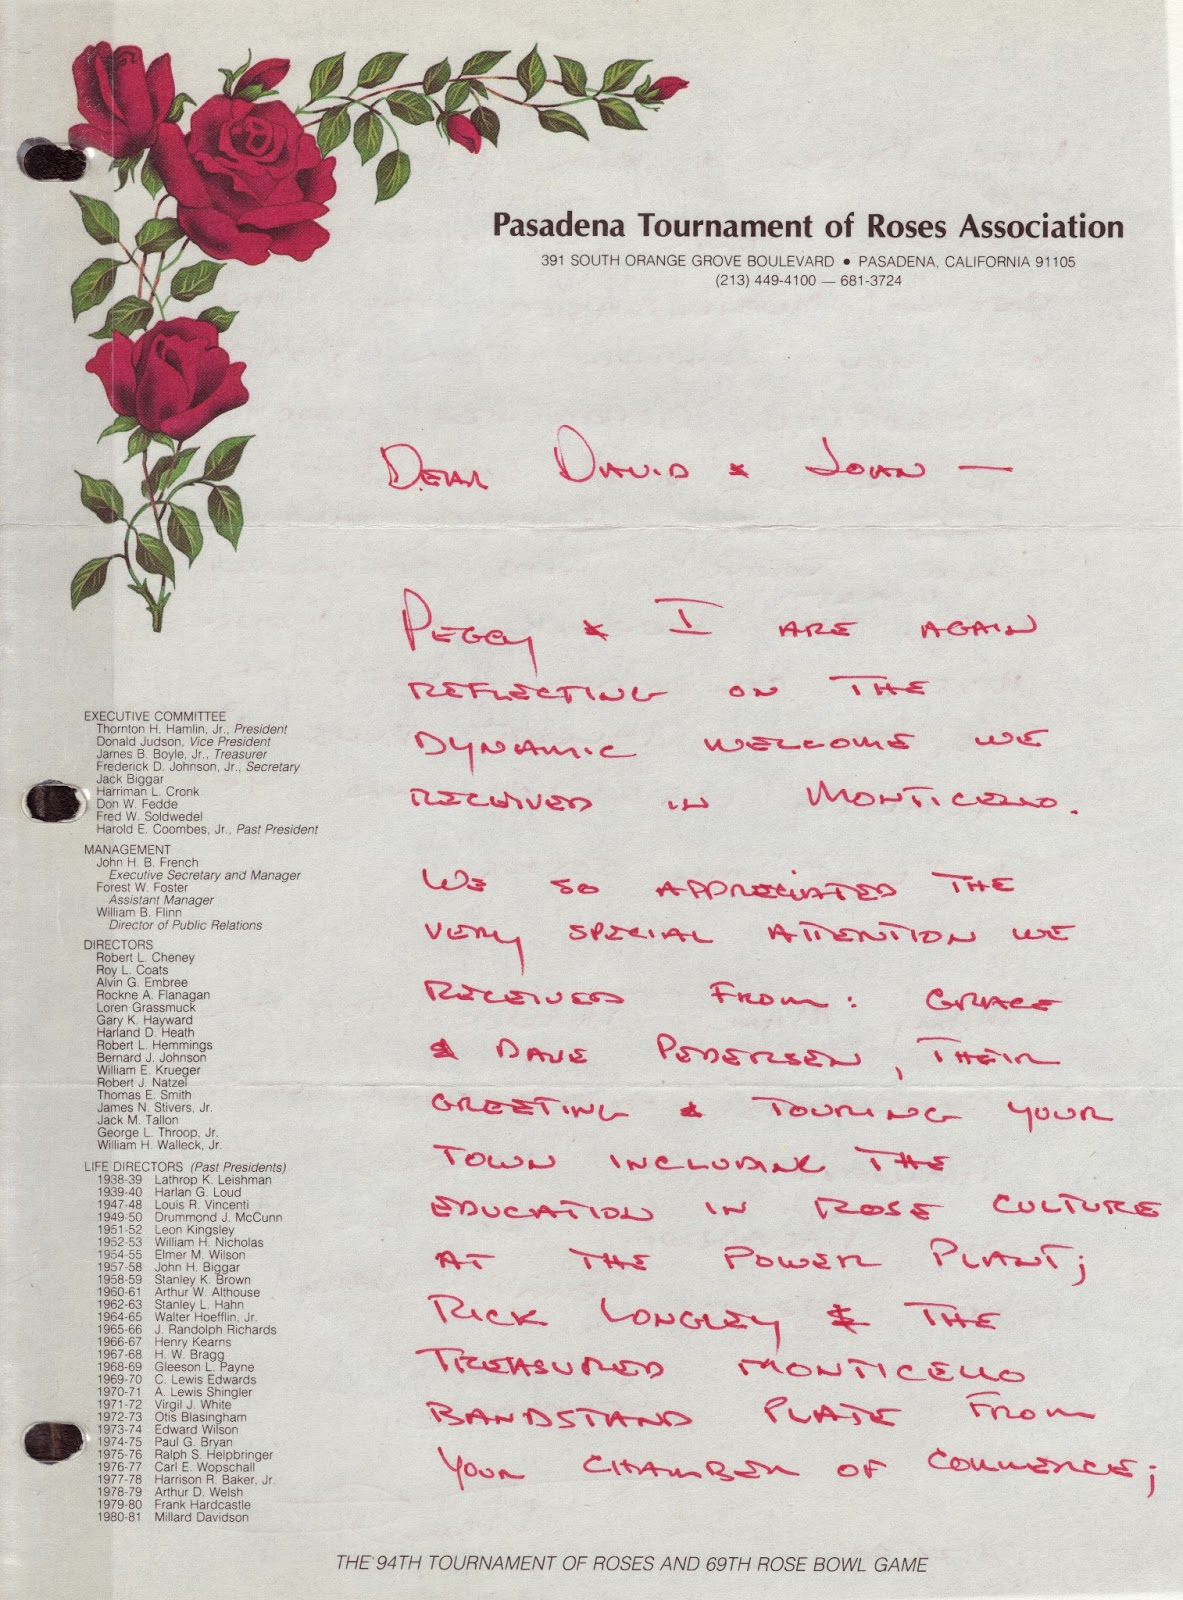 Pasadena Tournament of Roses Association
391 SOUTH ORANGE GROVE BOULEVARD • PASADENA, CALIFORNIA 91105
(213) 449-4100 — 681-3724
DEAR DAVID & JOAN —
PEGGY & I ARE AGAIN
REFLECTING ON THE
DYNAMIC WELCOME WE
RECEIVED IN MONTICELLO.
WE SO APPRECIATED THE
VERY SPECIAL ATTENTION WE
RECEIVED FROM: GRACE
& DAVE PEDERSEN, THEIR
GREETING & TOURING YOUR
TOWN INCLUDING THE
EDUCATION IN ROSE CULTURE
AT THE POWER PLANT;
RICK LONGLEY & THE
TREASURED MONTICELLO
BANDSTAND PLATE FROM
YOUR CHAMBER OF COMMERCE;
EXECUTIVE COMMITTEE
Thornton H. Hamlin, Jr., President
Donald Judson, Vice President
James B. Boyle, Jr., Treasurer
Frederick D. Johnson, Jr., Secretary
Jack Biggar
Harriman L. Cronk
Don W. Fedde
Fred W. Soldwedel
Harold E. Coombes, Jr., Past President
MANAGEMENT
John H. B. French
Executive Secretary and Manager
Forest W. Foster
Assistant Manager
William B. Flinn
Director of Public Relations
DIRECTORS
Robert L. Cheney
Roy L. Coats
Alvin G. Embree
Rockne A. Flanagan
Loren Grassmuck
Gary K. Hayward
Harland D. Heath
Robert L. Hemmings
Bernard J. Johnson
William E. Krueger
Robert J. Natzel
Thomas E. Smith
James N. Stivers, Jr.
Jack M. Tallon
George L. Throop, Jr.
William H. Walleck, Jr.
LIFE DIRECTORS (Past Presidents)
1938-39 Lathrop K. Leishman
1939-40 Harlan G. Loud
1947-48 Louis R. Vincenti
1949-50 Drummond J. McCunn
1951-52 Leon Kingsley
1952-53 William H. Nicholas
1954-55 Elmer M. Wilson
1957-58 John H. Biggar
1958-59 Stanley K. Brown
1960-61 Arthur W. Althouse
1962-63 Stanley L. Hahn
1964-65 Walter Hoefflin, Jr.
1965-66 J. Randolph Richards
1966-67 Henry Kearns
1967-68 H. W. Bragg
1968-69 Gleeson L. Payne
1969-70 C. Lewis Edwards
1970-71 A. Lewis Shingler
1971-72 Virgil J. White
1972-73 Otis Blasingham
1973-74 Edward Wilson
1974-75 Paul G. Bryan
1975-76 Ralph S. Helpbringer
1976-77 Carl E. Wopschall
1977-78 Harrison R. Baker, Jr.
1978-79 Arthur D. Welsh
1979-80 Frank Hardcastle
1980-81 Millard Davidson
THE 94TH TOURNAMENT OF ROSES AND 69TH ROSE BOWL GAME